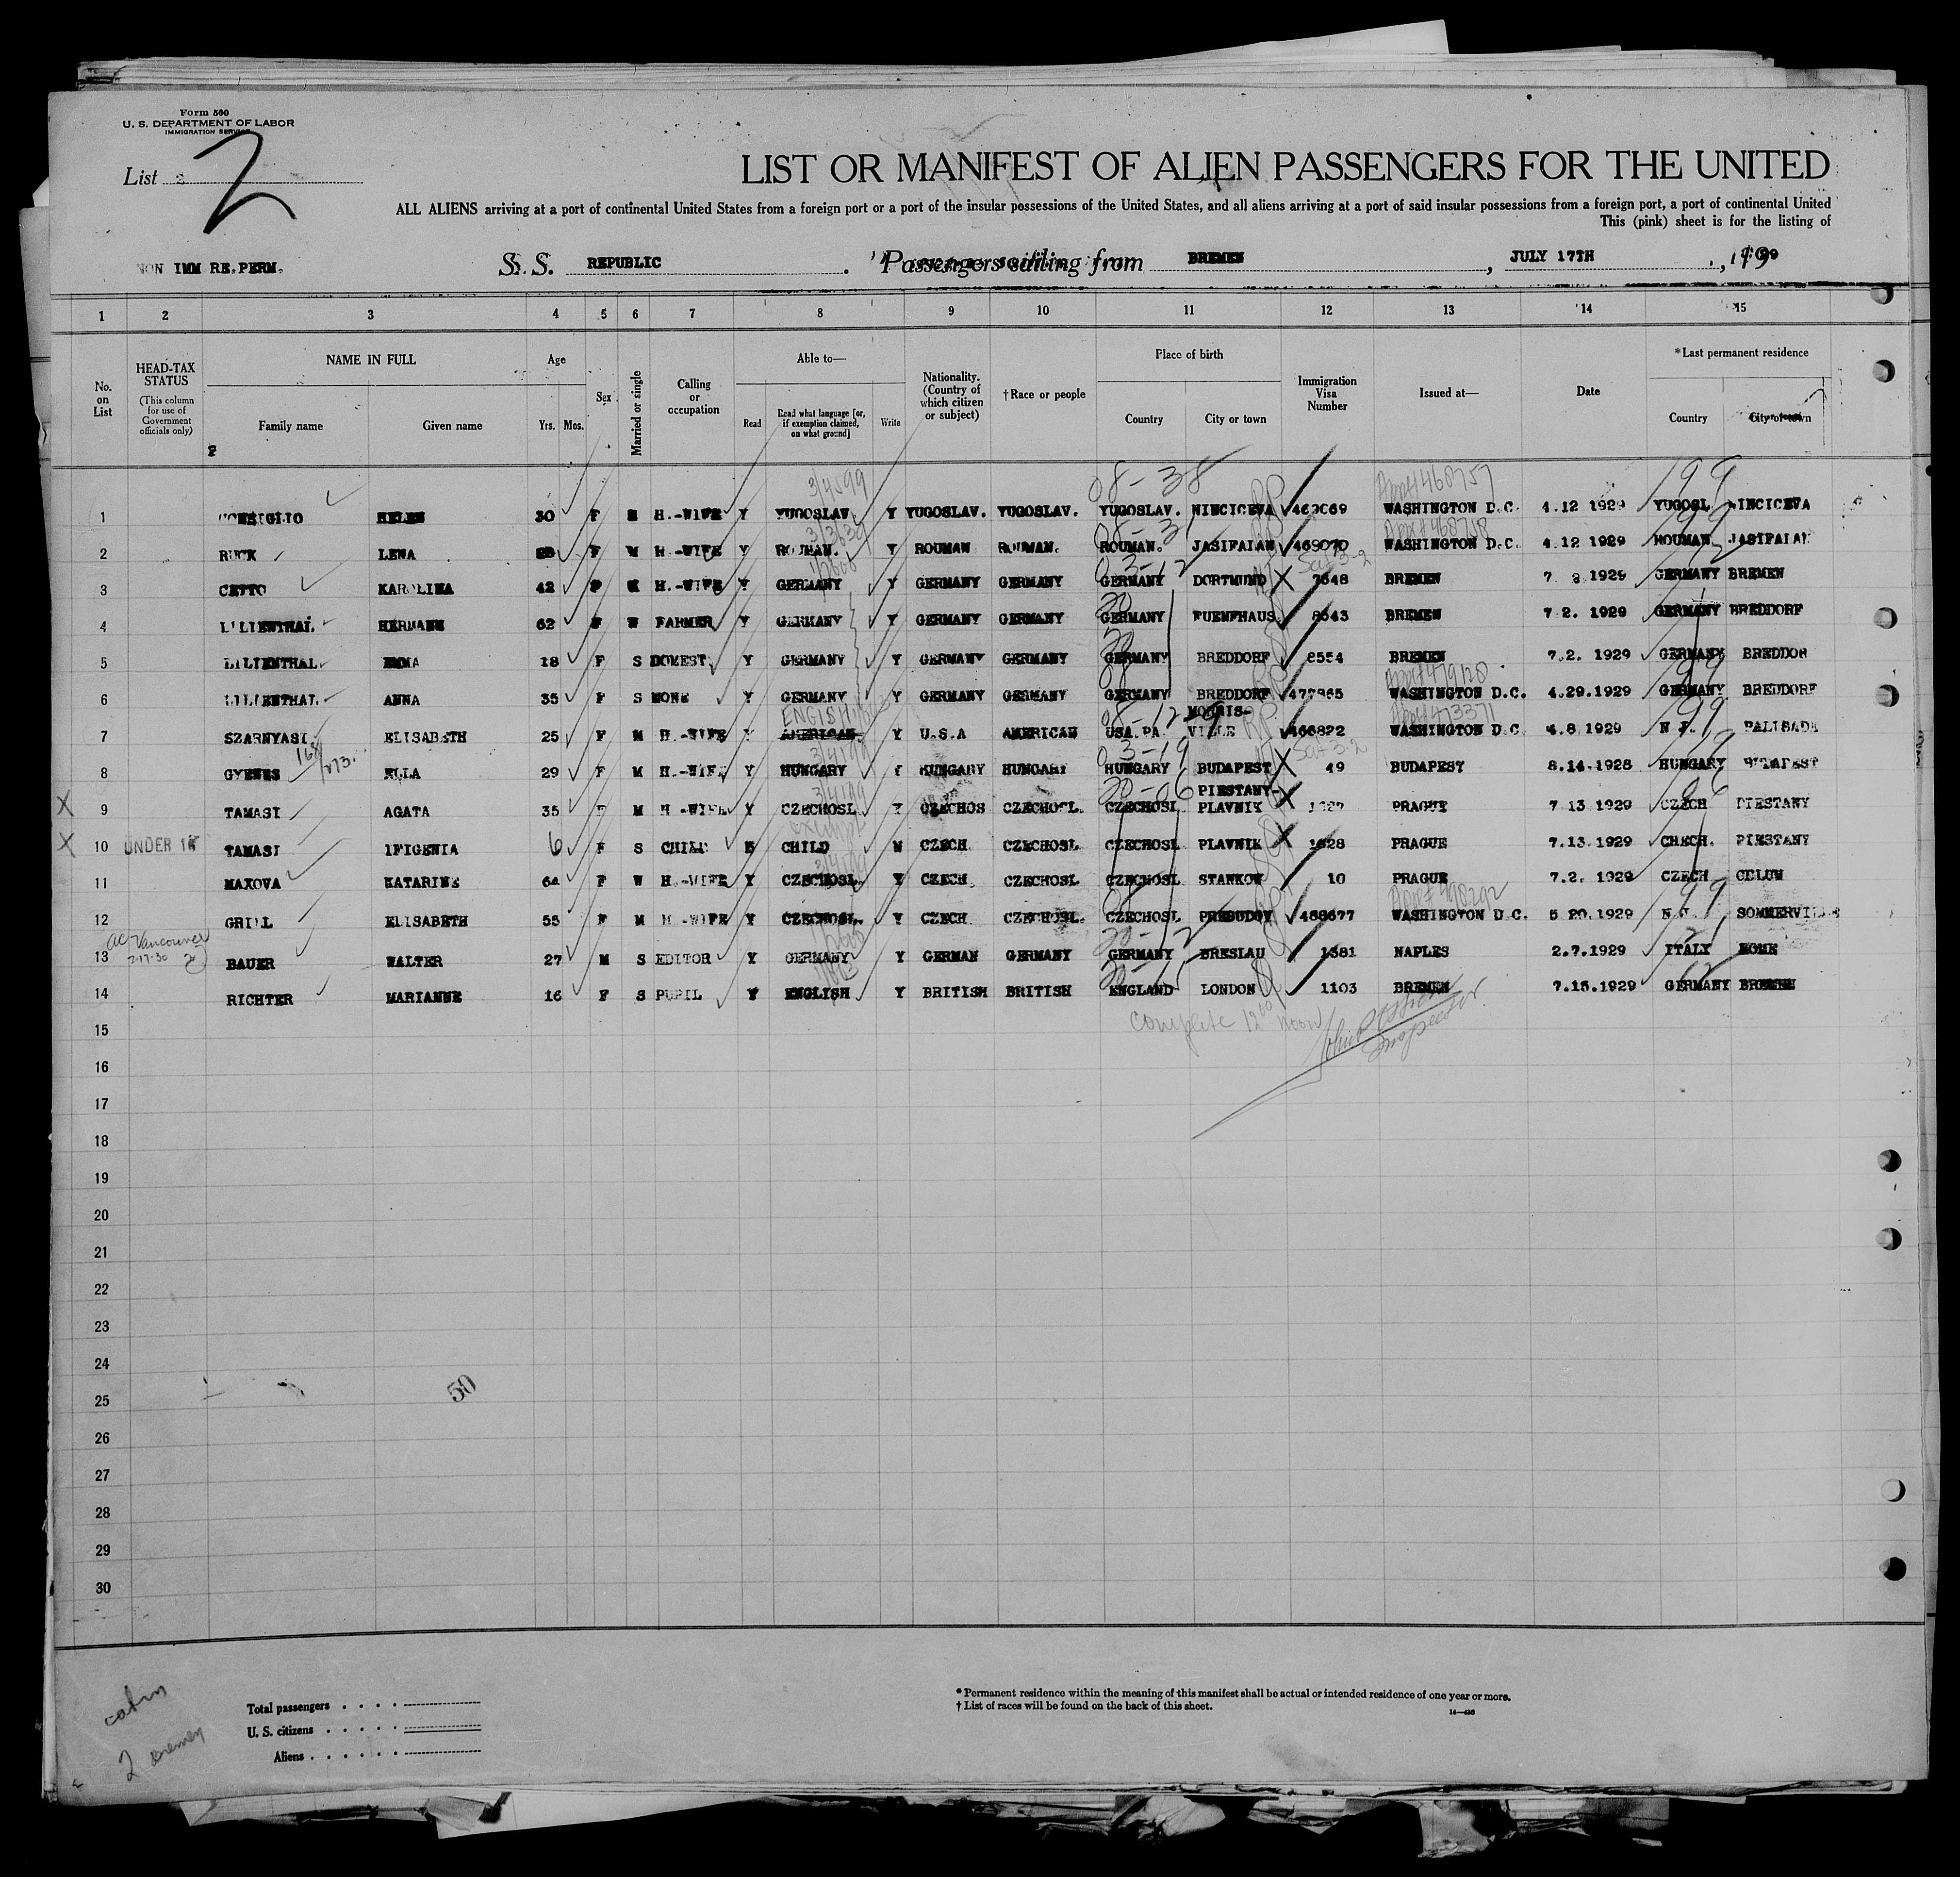 Form 500
U. S. DEPARTMENT OF LABOR
IMMIGRATION SERVICE
List 2
LIST OR MANIFEST OF ALIEN PASSENGERS FOR THE UNITED
ALL ALIENS arriving at a port of continental United States from a foreign port or a port of the insular possessions of the United States, and all aliens arriving at a port of said insular possessions from a foreign port, a port of continental United
This (pink) sheet is for the listing of
NON IMM RE.PERM. S. S. REPUBLIC Passengers sailing from BREMEN , JULY 17TH , 19
1 2 3 4 5 6 7 8 9 10 11 12 13 14 15
No. on List
HEAD-TAX STATUS
(This column for use of Government officials only)
NAME IN FULL
Family name Given name
Age
Yrs. Mos.
Sex
Married or single
Calling or occupation
Able to—
Read Read what language [or, if exemption claimed, on what ground] Write
Nationality. (Country of which citizen or subject)
†Race or people
Place of birth
Country City or town
Immigration Visa Number
Issued at—
Date
*Last permanent residence
Country City or town
1 CONSIGLIO HELEN 30 F H.-WIFE Y YUGOSLAV. Y YUGOSLAV. YUGOSLAV. YUGOSLAV. NINCICEVA 469069 WASHINGTON D.C. 4.12 1929 YUGOSL NINCICEVA
2 RUCK LENA F M H.-WIFE Y ROUMAN. Y ROUMAN ROUMAN. ROUMAN. JASIFAIAN 469070 WASHINGTON D.C. 4.12 1929 ROUMAN JASIFAIAN
3 CETTO KAROLINA 42 F M H.-WIFE Y GERMANY Y GERMANY GERMANY GERMANY DORTMUND 7648 BREMEN 7 1929 GERMANY BREMEN
4 LILIENTHAL HERMANN 62 W FARMER Y GERMANY Y GERMANY GERMANY GERMANY FUENFHAUS 8643 BREMEN 7 2. 1929 GERMANY BREDDORF
5 LILIENTHAL EMMA 18 F S DOMEST. Y GERMANY Y GERMANY GERMANY GERMANY BREDDORF BREMEN 7.2. 1929 GERMANY BREDDOR
6 LILIENTHAL ANNA 35 F S NONE Y GERMANY Y GERMANY GERMANY GERMANY BREDDORF 477865 WASHINGTON D.C. 4.29.1929 GERMANY BREDDORF
7 SZARNYASI ELISABETH 25 F M H.-WIFE Y AMERICAN ENGISH Y U.S.A AMERICAN USA.PA. MORRIS-VILLE 466822 WASHINGTON D.C. 4.8 1929 N.J. PALISADA
8 GYENES ELLA 29 F M H.-WIFE Y HUNGARY Y HUNGARY HUNGARY HUNGARY BUDAPEST 49 BUDAPEST 8.14.1928 HUNGARY BUDAPEST
X 9 TAMASI AGATA 35 F M H.-WIFE Y CZECHOSL. Y CZECHOS CZECHOSL. CZECHOSL PIESTANY-PLAVNIK PRAGUE 7 13 1929 CZECH PIESTANY
X 10 UNDER 16 TAMASI IFIGENIA 6 F S CHILD N CHILD N CZECH CZECHOSL CZECHOSL PLAVNIK 1628 PRAGUE 7.13.1929 CHECH. PIESTANY
11 MAXOVA KATARINE 64 F W H.-WIFE Y CZECHOSL. Y CZECH CZECHOSL CZECHOSL STANKOW 10 PRAGUE 7.2. 1929 CZECH CHLUM
12 GRILL ELISABETH 55 F M H-WIFE Y CZECHOSL. Y CZECH CZECHOSL. CZECHOSL PREBUDOV 488677 WASHINGTON D.C. 5 20.1929 N.J. SOMMERVILLE
ac Vancouver 2-17-30
13 BAUER WALTER 27 M S EDITOR Y GERMANY Y GERMAN GERMANY GERMANY BRESLAU 1381 NAPLES 2.7.1929 ITALY ROME
14 RICHTER MARIANNE 16 F S PUPIL Y ENGLISH Y BRITISH BRITISH ENGLAND LONDON 1103 BREMEN 7.15.1929 GERMANY BREMEN
15 Complete 12 noon
Inspector
16
17
18
19
20
21
22
23
24
25 50
26
27
28
29
30
Total passengers
U. S. citizens
Aliens
* Permanent residence within the meaning of this manifest shall be actual or intended residence of one year or more.
† List of races will be found on the back of this sheet.
cabin
2 Bremen